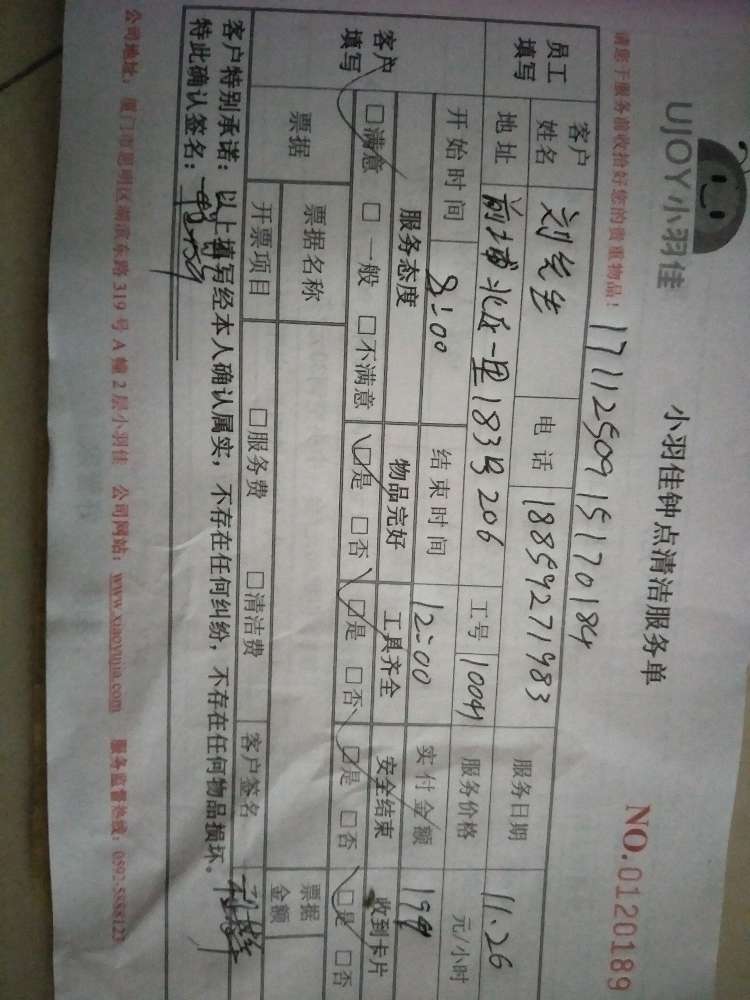 UJOY小羽佳
小羽佳钟点清洁服务单
NO.0120189
请您于服务前收拾好您的贵重物品!
1711250915170184
员工填写 客户姓名 刘先生 电话 18859271983 服务日期 11.26
地址 前埔北区一里183号206 工号 10091 服务价格 元/小时
开始时间 8:00 结束时间 12:00 实付金额 199
客户填写 服务态度 物品完好 工具齐全 安全结束 收到卡片
□满意 □一般 □不满意 □是 □否 □是 □否 □是 □否 □是 □否
票据 票据名称 票据金额
开票项目 □服务费 □清洁费 客户签名
客户特别承诺:以上填写经本人确认属实,不存在任何纠纷,不存在任何物品损坏。
特此确认签名:
公司地址:厦门市思明区湖滨东路319号A幢2层小羽佳 公司网站:www.xiaoyujia.com 服务监督热线:0592-5888123